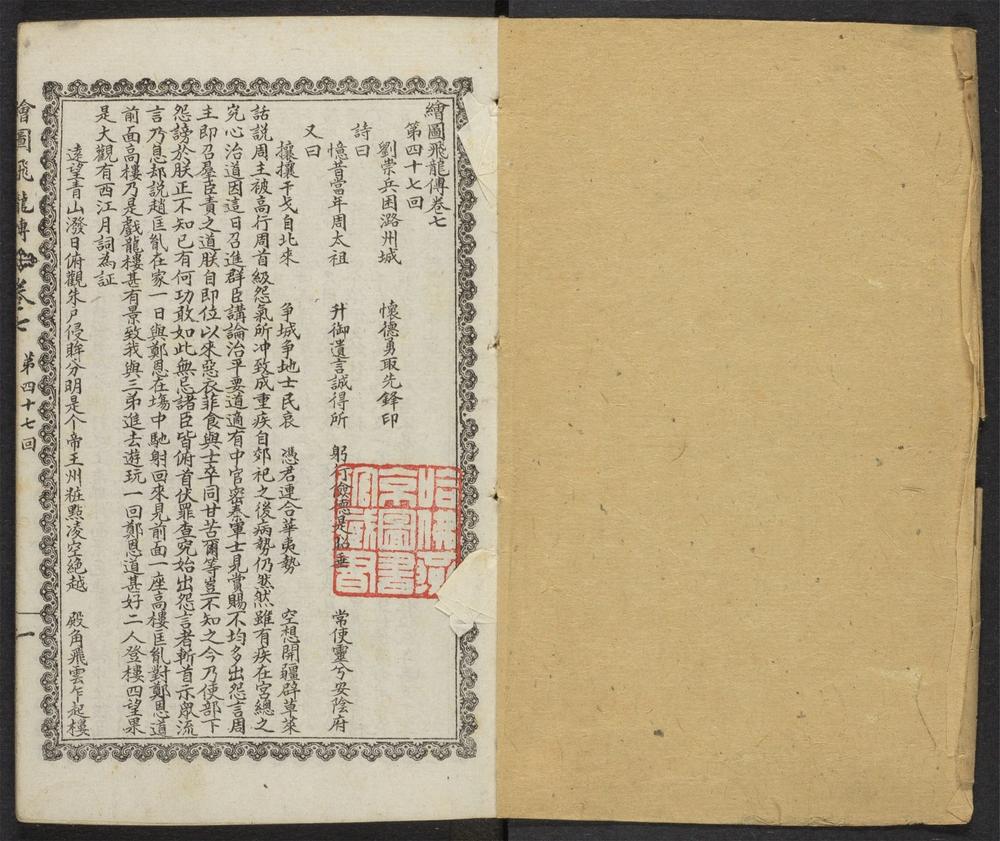 繪圖飛龍傳卷七
第四十七回
劉崇兵困潞州城 懷德勇取先鋒印
詩曰
憶昔當年周太祖 升御遺言誠得所 躬行儉德是昭垂 常使靈兮安陰府
又曰
攘攘干戈自北來 爭城爭地士民哀 憑君連合華夷勢 空想開疆辟草萊
話說周主被高行周首級怨氣所冲致成重疾自郊祀之後病勢仍然然雖有疾在宮總之
究心治道因這日召進群臣講論治平要道適有中官密奏軍士見賞賜不均多出怨言周
主即召羣臣責之道朕自即位以來惡衣菲食與士卒同甘苦爾等豈不知之今乃使部下
怨謗於朕正不知已有何功敢如此無忌諸臣皆俯首伏罪查究始出怨言者斬首示眾流
言乃息却說趙匡胤在家一日與鄭恩在塲中馳射回來見前面一座高樓匡胤對鄭恩道
前面高樓乃是戲龍樓甚有景致我與三弟進去遊玩一回鄭恩道甚好二人登樓四望果
是大觀有西江月詞為証
遠望青山潑日俯觀朱戶侵眸分明是个帝王州粧點凌空絕越 殿角飛雲乍起樓
繪圖飛龍傳 卷七 第四十七回 一
哈佛燕京圖書館藏書